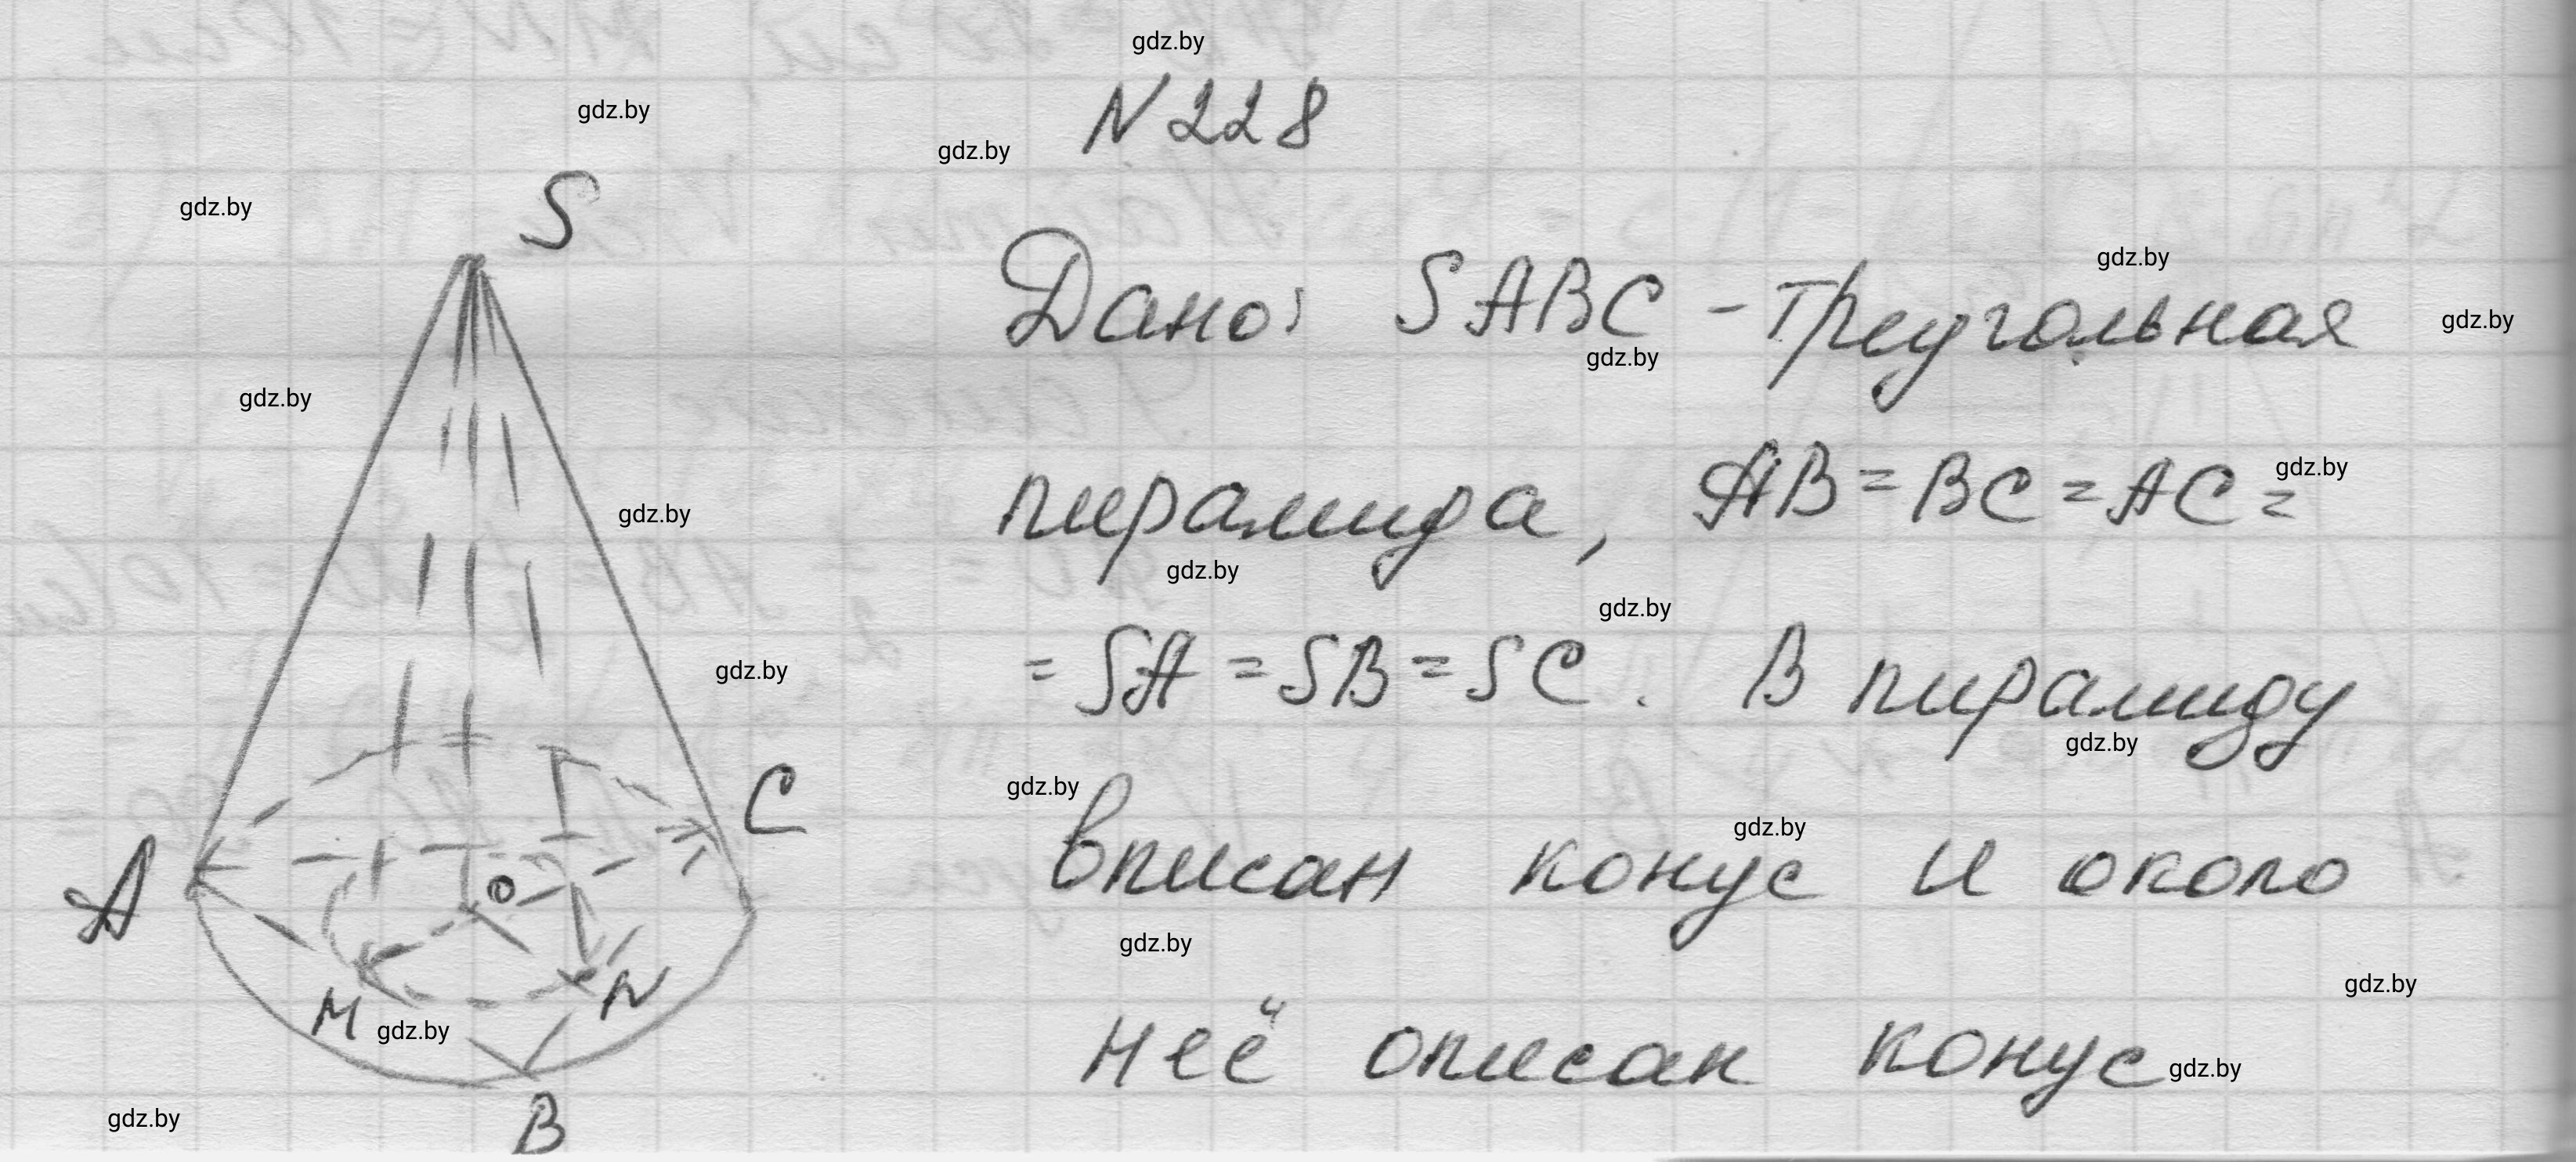 gdz.by
N 228
gdz.by
gdz.by
gdz.by
S
Дано: SABC - треугольная
gdz.by
gdz.by
gdz.by
gdz.by
пирамида, AB = BC = AC =
gdz.by
gdz.by
gdz.by
gdz.by
= SA = SB = SC. В пирамиду
gdz.by
gdz.by
gdz.by
C
вписан конус и около
gdz.by
A
O
gdz.by
gdz.by
M
N
gdz.by
неё описан конус
gdz.by
gdz.by
B